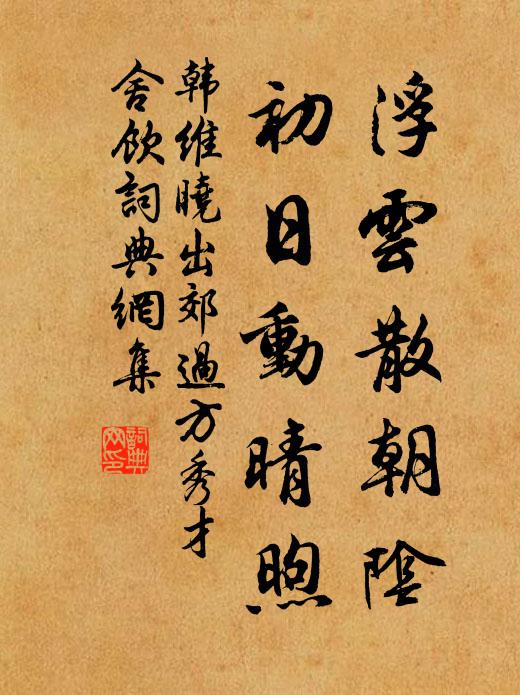 浮雲散朝陰
初日動晴煦
韩維曉出郊過方秀才
舍飲詞典網集
詞典網印